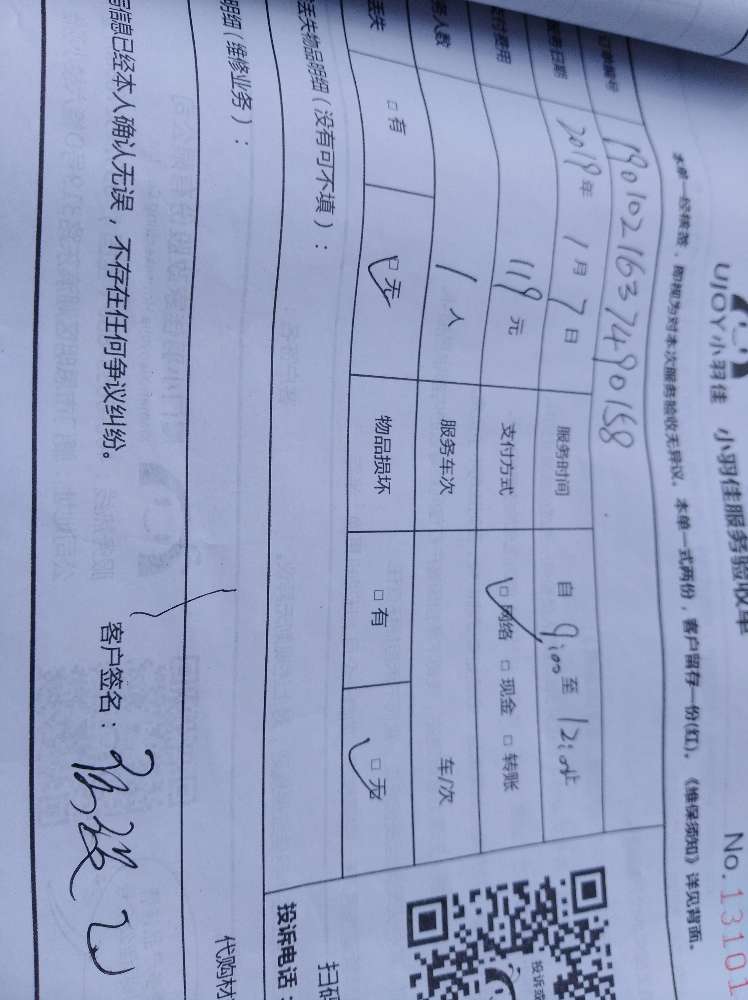 UJOY小羽佳 小羽佳服务验收单
No.13101
本单一经核签，即视为对本次服务验收无异议。本单一式两份，客户留存一份(红)。《维保须知》详见背面。
订单编号 1901021637490158
服务日期 2019年1月7日 服务时间 自 9:00 至 12:00止
支付费用 119元 支付方式 □网络 □现金 □转账
务人数 1人 服务车次 车/次
丢失 □有 □无 物品损坏 □有 □无
丢失物品明细（没有可不填）：
明细（维修业务）：
代购材
信息已经本人确认无误，不存在任何争议纠纷。 客户签名：
投诉或
扫码
投诉电话：